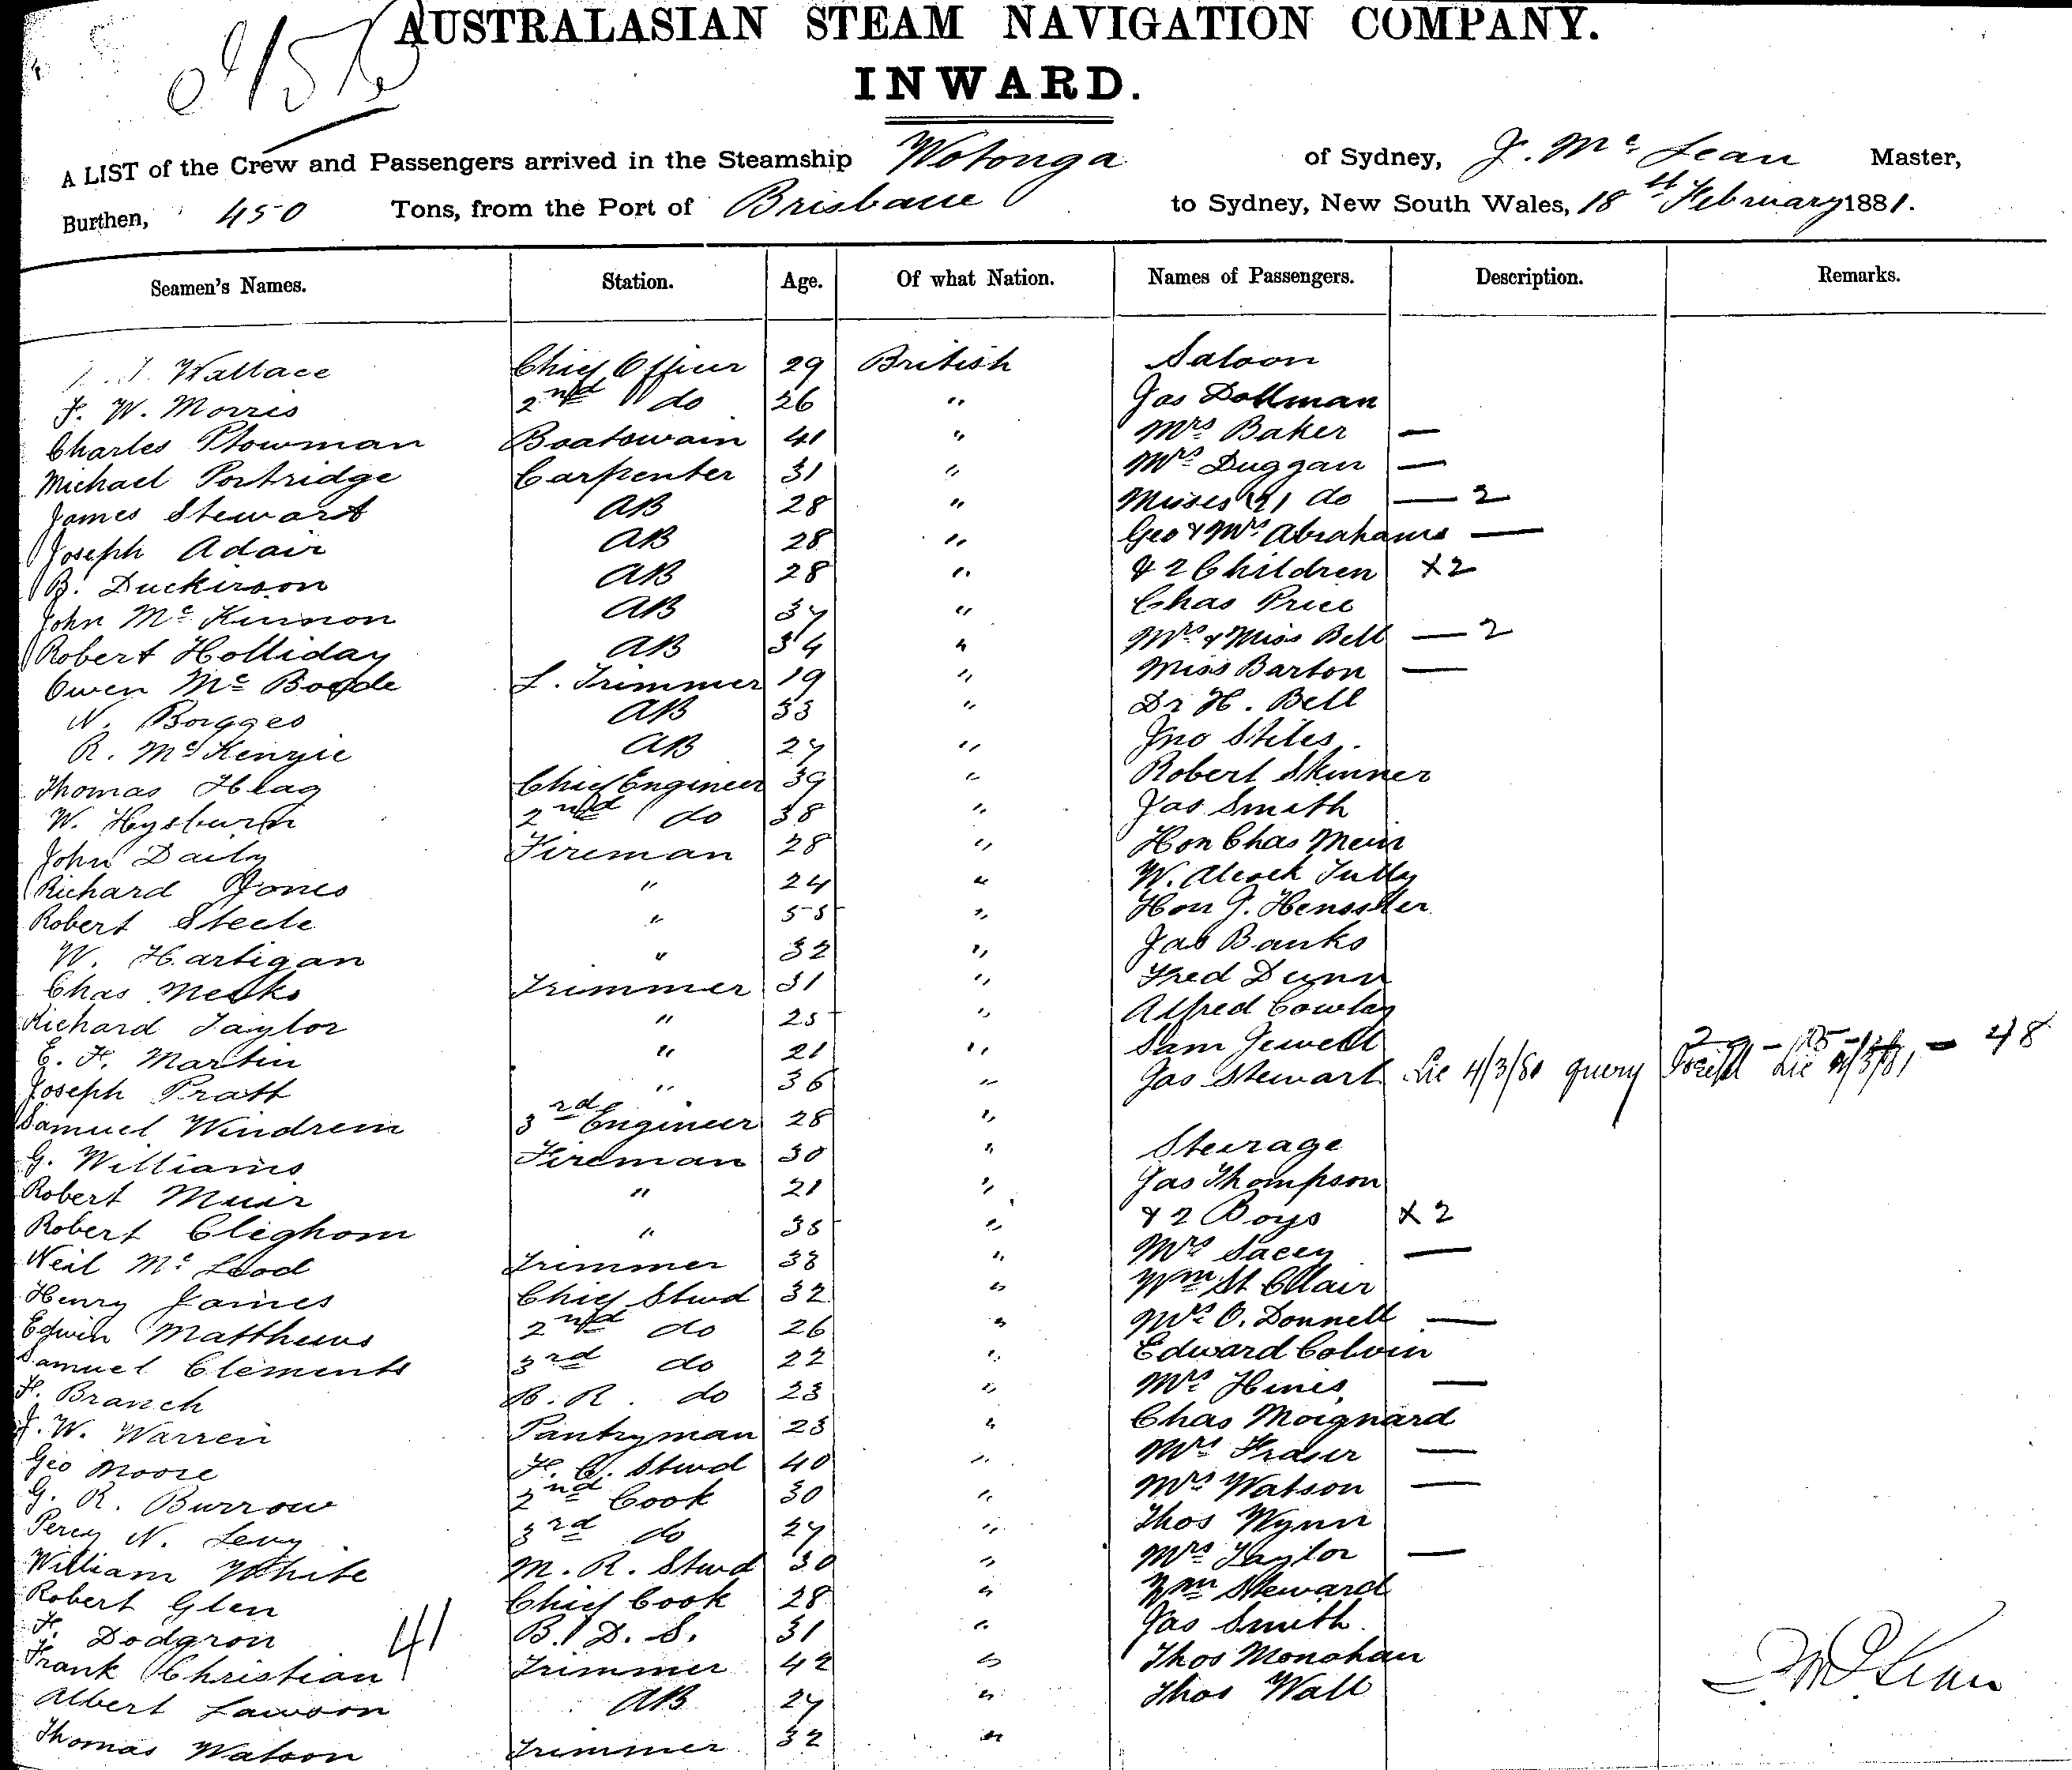 AUSTRALASIAN STEAM NAVIGATION COMPANY.
INWARD.
A LIST of the Crew and Passengers arrived in the Steamship Wotonga of Sydney, J. Mc Lean Master,
Burthen, 450 Tons, from the Port of Brisbane to Sydney, New South Wales, 18th February 1881.
Seamen's Names. Station. Age. Of what Nation. Names of Passengers. Description. Remarks.
Wallace Chief Officer 29 British Saloon
F. W. Morris 2nd do 26 " Jas Dollman
Charles Plowman Boatswain 41 " Mrs Baker —
Michael Portridge Carpenter 31 " Mrs Duggan —
James Stewart AB 28 " Misses (2) do — 2
Joseph Adair AB 28 " Geo & Mrs Abrahams —
B. Duckirson AB 28 " & 2 Children X2
John Mc Kinnon AB 37 " Chas Price
Robert Holliday AB 34 " Mrs & Miss Bell — 2
Owen Mc Boyde L. Trimmer 19 " Miss Barton —
N. Borgges AB 33 " Dr H. Bell
R. McKenzie AB 27 " Jno Stiles.
Thomas Hlag Chief Engineer 39 " Robert Skinner
W. Hysburn 2nd do 38 " Jas Smith
John Daily Fireman 28 " Hon Chas Mein
Richard Jones " 24 " W. Alcock Tully
Robert Steele " 55 " Hon J. Henssler
W. Hartigan " 32 " Jas Banks
Chas Meeks Trimmer 31 " Fred Dunn
Richard Taylor " 25 " Alfred Cowley
E. F. Martin " 21 " Sam Jewell
Joseph Pratt " 36 " Jas Stewart Lic 4/3/80 query — 48
Samuel Windrem 3rd Engineer 28 "
G. Williams Fireman 30 " Steerage
Robert Muir " 21 " Jas Thompson
Robert Cleghorn " 35 " & 2 Boys X 2
Neil Mc Leod Trimmer 33 " Mrs Lacey —
Henry James Chief Stwd 32 " Wm St Clair
Edwin Matthews 2nd do 26 " Mrs O. Donnell —
Samuel Clements 3rd do 22 " Edward Colvin
F. Branch B. R. do 23 " Mrs Hines —
J. W. Warren Pantryman 23 " Chas Moignard
Geo Moore F. C. Stwd 40 " Mrs Fraser —
G. R. Burrow 2nd Cook 30 " Mrs Watson —
Percy N. Levy 3rd do 27 " Thos Wynn
William White M. R. Stwd 30 " Mrs Taylor —
Robert Glen Chief Cook 28 " Wm Steward
F. Dodgron 41 B. D. S. 31 " Jas Smith
Frank Christian Trimmer 42 " Thos Monahan
Albert Lawson AB 27 " Thos Wall
Thomas Watson Trimmer 32 "
J McLean